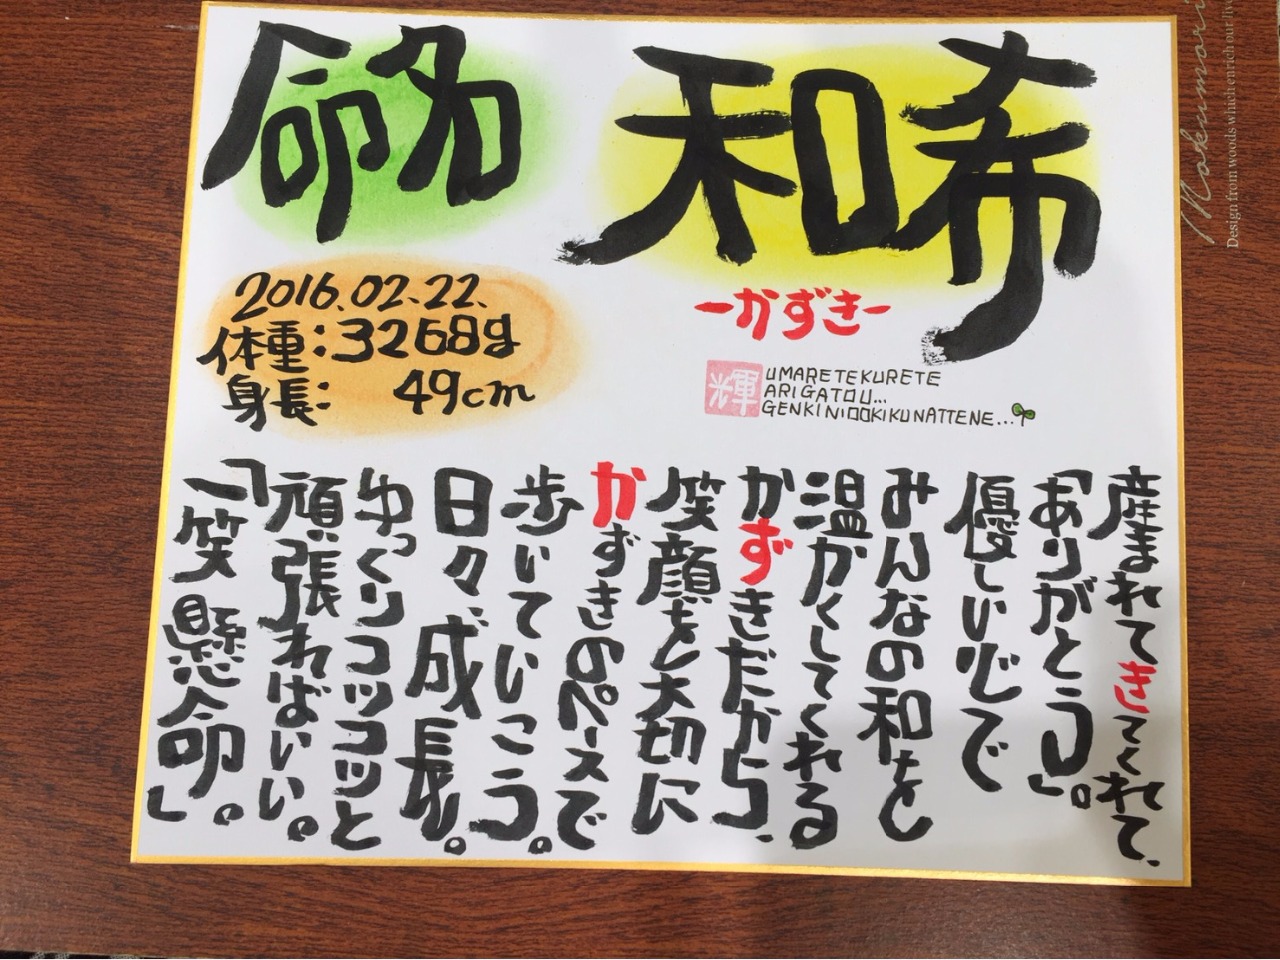 命名
和希
-かずき-
2016.02.22.
体重:3268g
身長: 49cm
輝
UMARETEKURETE
ARIGATOU...
GENKINIOOKIKUNATTENE...
産まれてきてくれて、
「ありがとう」。
優しい心で
みんなの和を
温かくしてくれる
かずきだから、
笑顔を大切に
かずきのペースで
歩いていこう。
日々、成長。
ゆっくりコツコツと
頑張ればいい。
「一笑懸命」。
Mokumori
Design from woods which enrich our liv